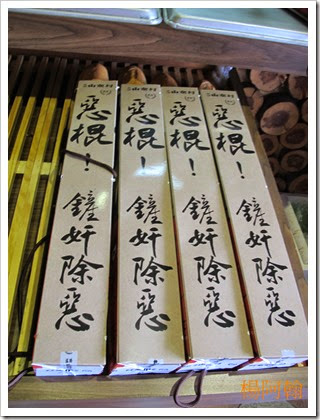 惡棍！鏟奸除惡
惡棍！鏟奸除惡
惡棍！鏟奸除惡
惡棍！鏟奸除惡